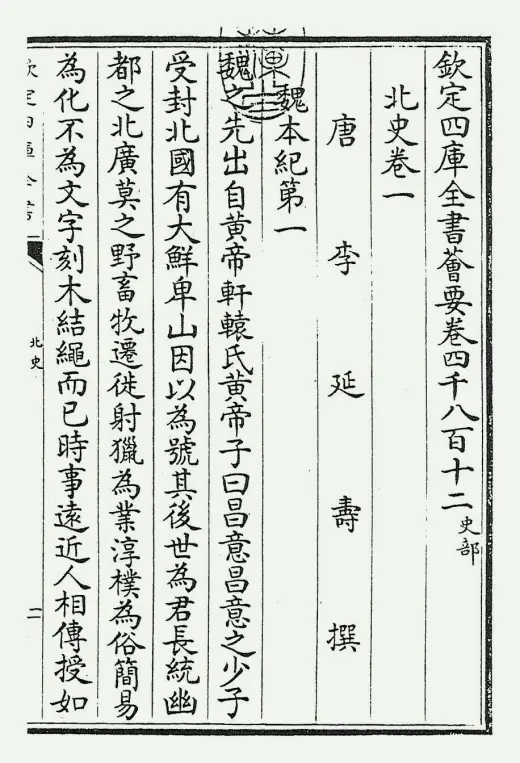 欽定四庫全書薈要卷四千八百十二史部
北史卷一
唐李延壽撰
魏本紀第一
魏之先出自黄帝軒轅氏黄帝子曰昌意昌意之少子
受封北國有大鮮卑山因以為號其後世為君長統幽
都之北廣莫之野畜牧遷徙射獵為業淳樸為俗簡易
為化不為文字刻木結繩而已時事遠近人相傳授如
北史
二